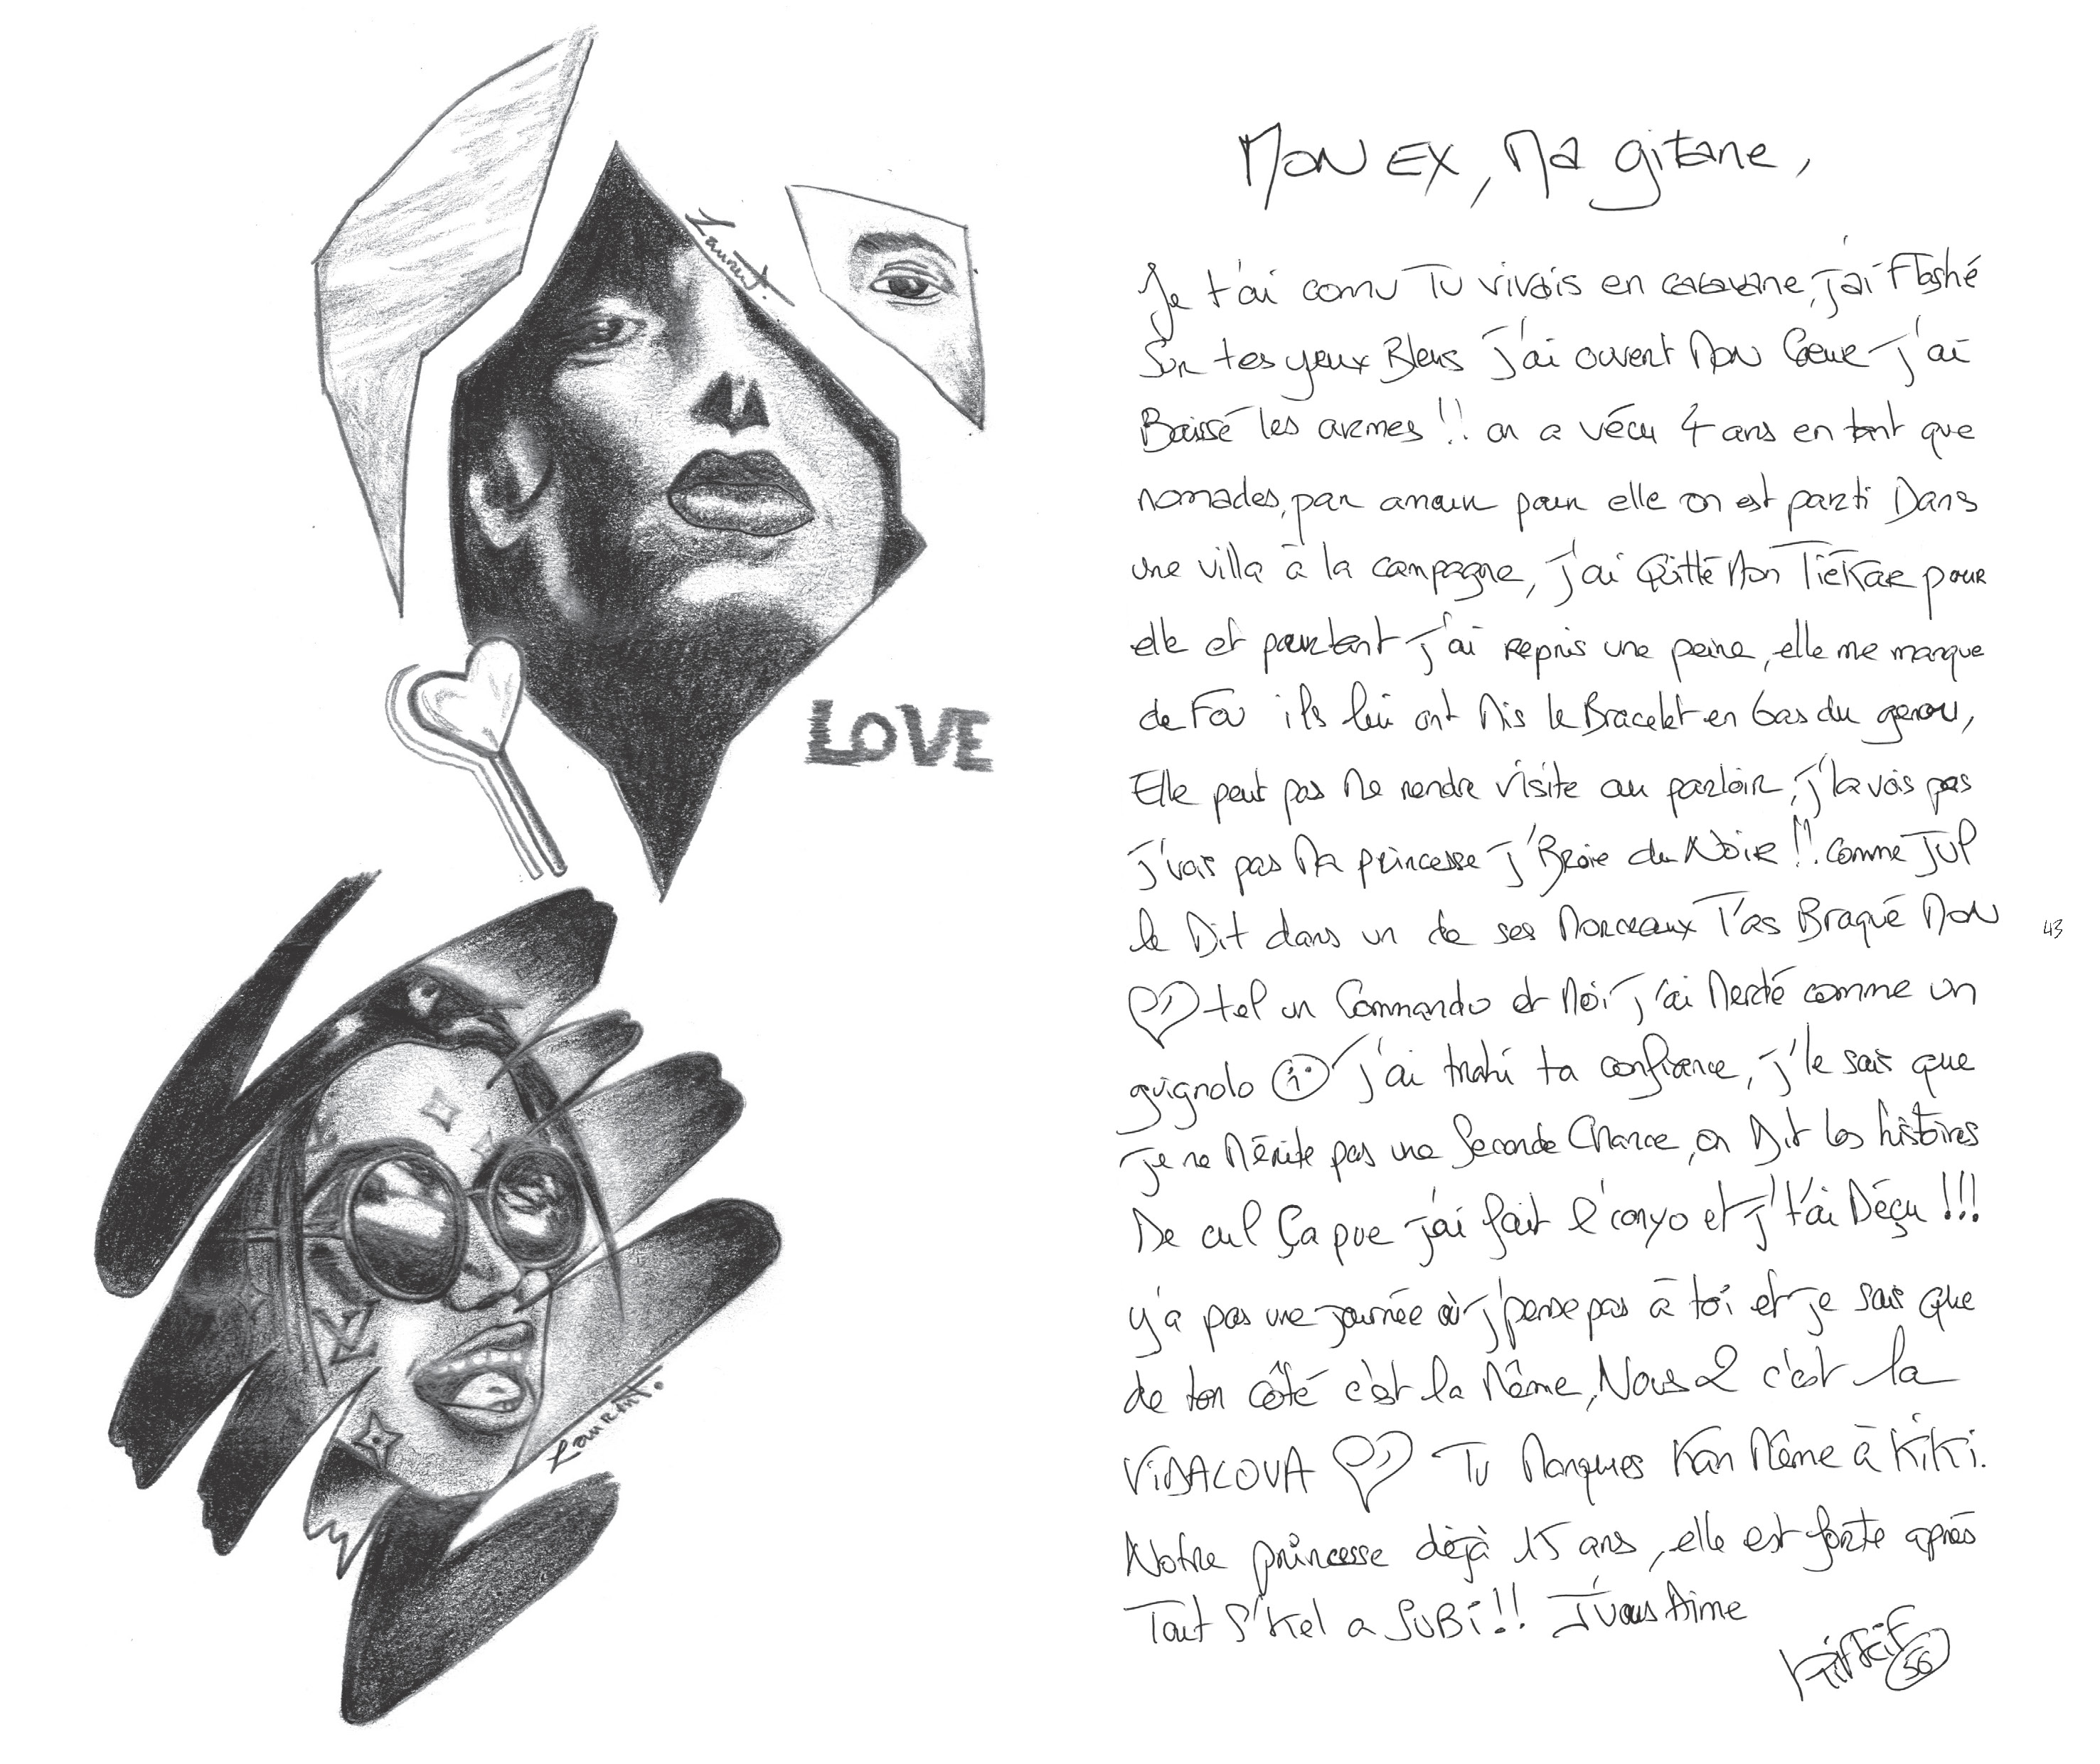 Laurent.
LOVE
Laurent.
MON EX, MA gitane,
Je t'ai connu Tu vivais en caravane, j'ai Flashé
Sur tes yeux Bleus J'ai ouvert Mon Coeur J'ai
Baissé les armes !! on a vécu 4 ans en tant que
nomades, par amour pour elle on est parti Dans
une villa à la campagne, j'ai Quitté Mon TiéKAR pour
elle et pourtant J'ai repris une peine, elle me manque
de Fou ils lui ont Mis le Bracelet en bas du genou,
Elle peut pas Me rendre visite au parloir, j'la vois pas
J'vois pas Ma princesse J'Broie du Noir !! comme JUL
le Dit dans un de ses Morceaux T'as Braqué Mon
♡ tel un Commando et Moi J'ai Merdé comme un
guignolo J'ai trahi ta confiance, j'le sais que
Je ne Mérite pas une Seconde Chance, on Dit les histoires
De cul Ça pue j'ai fait l'conyo et j't'ai Déçu !!!
y'a pas une journée où j'pense pas à toi et je sais que
de ton côté c'est la Même, Nous 2 c'est la
ViDALOVA ♡ Tu Manques Kan Même à KiKi.
Notre princesse déjà 15 ans, elle est forte après
Tout S'Kel a SUBi !! J'Vous Aime
56
43